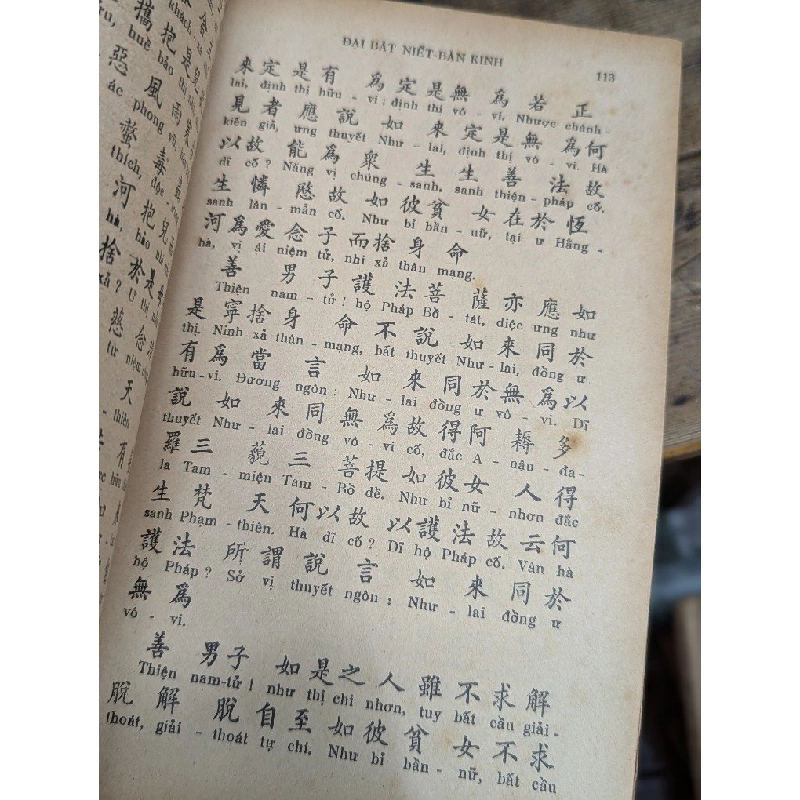 ĐẠI BÁT NIẾT-BÀN KINH
113
來定是有為定是無為若正
lai, định thị hữu - vi; định thị vô - vi. Nhược chánh-
見者應說如來定是無為何
kiến giả, ưng thuyết Như - lai, định thị vô - vi. Hà
以故能為眾生生善法故
dĩ cố? Năng vị chúng - sanh, sanh thiện - pháp cố,
生憐愍故如彼貧女在於恆
sanh lân - mẫn cố. Như bỉ bần - nữ, tại ư Hằng -
河為愛念子而捨身命
hà, vị ái niệm tử, nhi xả thân mạng.
善男子護法菩薩亦應如
Thiện nam - tử! hộ Pháp Bồ - tát, diệc ưng như
是寧捨身命不說如來同於
thị. Ninh xả thân - mạng, bất thuyết Như - lai, đồng ư
有為當言如來同於無為以
hữu - vi. Đương ngôn: Như - lai đồng ư vô - vi. Dĩ
說如來同無為故得阿耨多
thuyết Như - lai đồng vô - vi cố, đắc A - nậu - đa-
羅三藐三菩提如彼女人得
la Tam - miệu Tam - Bồ đề. Như bỉ nữ - nhơn đắc
生梵天何以故以護法故云何
sanh Phạm - thiên. Hà dĩ cố? Dĩ hộ Pháp cố. Vân hà
護法所謂說言如來同於
hộ Pháp? Sở vị thuyết ngôn: Như - lai đồng ư
無為
vô - vi.
善男子如是之人雖不求解
Thiện nam-tử! như thị chi nhơn, tuy bất cầu giải-
脫解脫自至如彼貧女不求
thoát, giải - thoát tự chí. Như bỉ bần - nữ, bất cầu